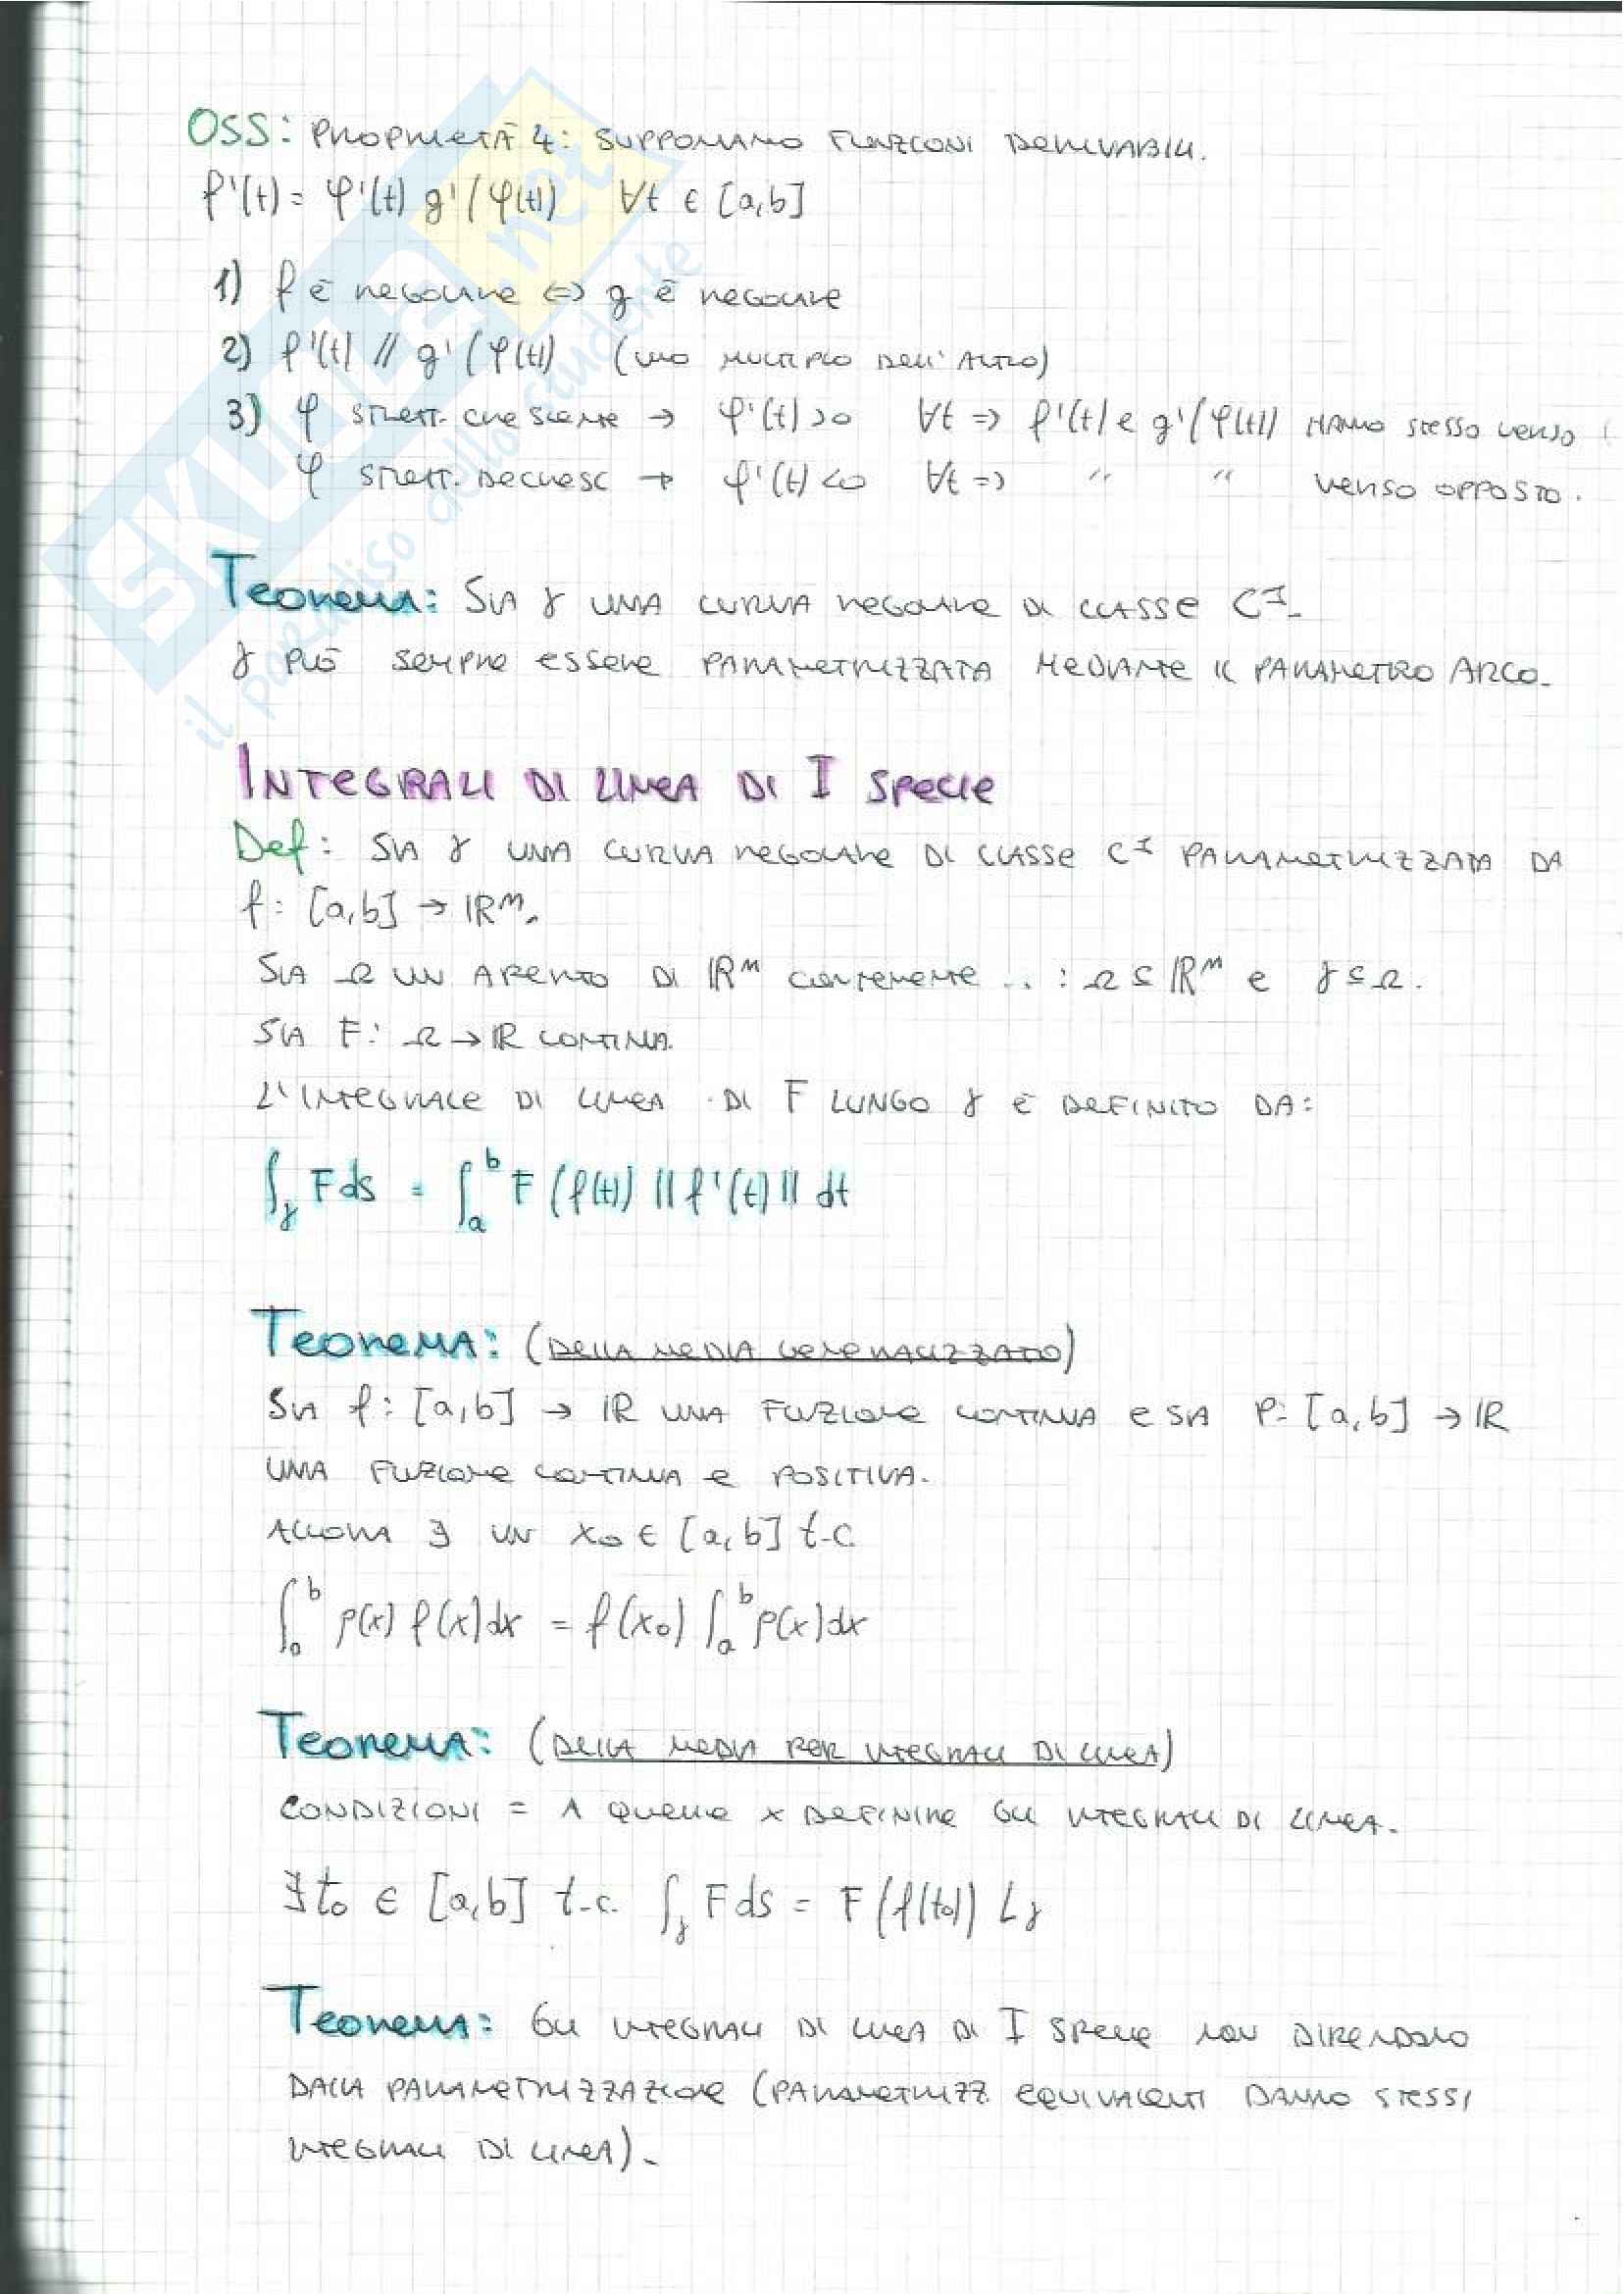 OSS: PROPRIETÀ 4: SUPPONIAMO FUNZIONI DERIVABILI.
f'(t) = φ'(t) g'(φ(t)) ∀t ∈ [a,b]
1) f è REGOLARE <=> g è REGOLARE
2) f'(t) // g'(φ(t)) (UNO MULTIPLO DELL'ALTRO)
3) φ STRETT. CRESCENTE → φ'(t)>0 ∀t => f'(t) e g'(φ(t)) HANNO STESSO VERSO
φ STRETT. DECRESC → φ'(t)<0 ∀t => " " VERSO OPPOSTO.
TEOREMA: SIA γ UNA CURVA REGOLARE DI CLASSE C^I.
γ PUÒ SEMPRE ESSERE PARAMETRIZZATA MEDIANTE IL PARAMETRO ARCO.
INTEGRALI DI LINEA DI I SPECIE
Def: SIA γ UNA CURVA REGOLARE DI CLASSE C^I PARAMETRIZZATA DA
f: [a,b] → IR^M.
SIA Ω UN APERTO DI IR^M CONTENENTE ..: Ω ⊆ IR^M e γ ⊆ Ω.
SIA F: Ω → IR CONTINUA.
L'INTEGRALE DI LINEA DI F LUNGO γ È DEFINITO DA:
∫_γ F ds = ∫_a^b F (f(t)) ||f'(t)|| dt
TEOREMA: (DELLA MEDIA GENERALIZZATO)
SIA f: [a,b] → IR UNA FUZIONE CONTINUA E SIA P: [a,b] → IR
UNA FUZIONE CONTINUA E POSITIVA.
ALLORA ∃ UN x₀ ∈ [a,b] t.c.
∫_a^b p(x) f(x)dx = f(x₀) ∫_a^b p(x)dx
TEOREMA: (DELLA MEDIA PER INTEGRALI DI LINEA)
CONDIZIONI = A QUELLE x DEFINIRE GLI INTEGRALI DI LINEA.
∃ t₀ ∈ [a,b] t.c. ∫_γ F ds = F (f(t₀)) L_γ
TEOREMA: GLI INTEGRALI DI LINEA DI I SPECIE NON DIPENDONO
DALLA PARAMETRIZZAZIONE (PARAMETRIZZ EQUIVALENTI DANNO STESSI
INTEGRALI DI LINEA).
SKUOLA.net
il paradiso dello studente